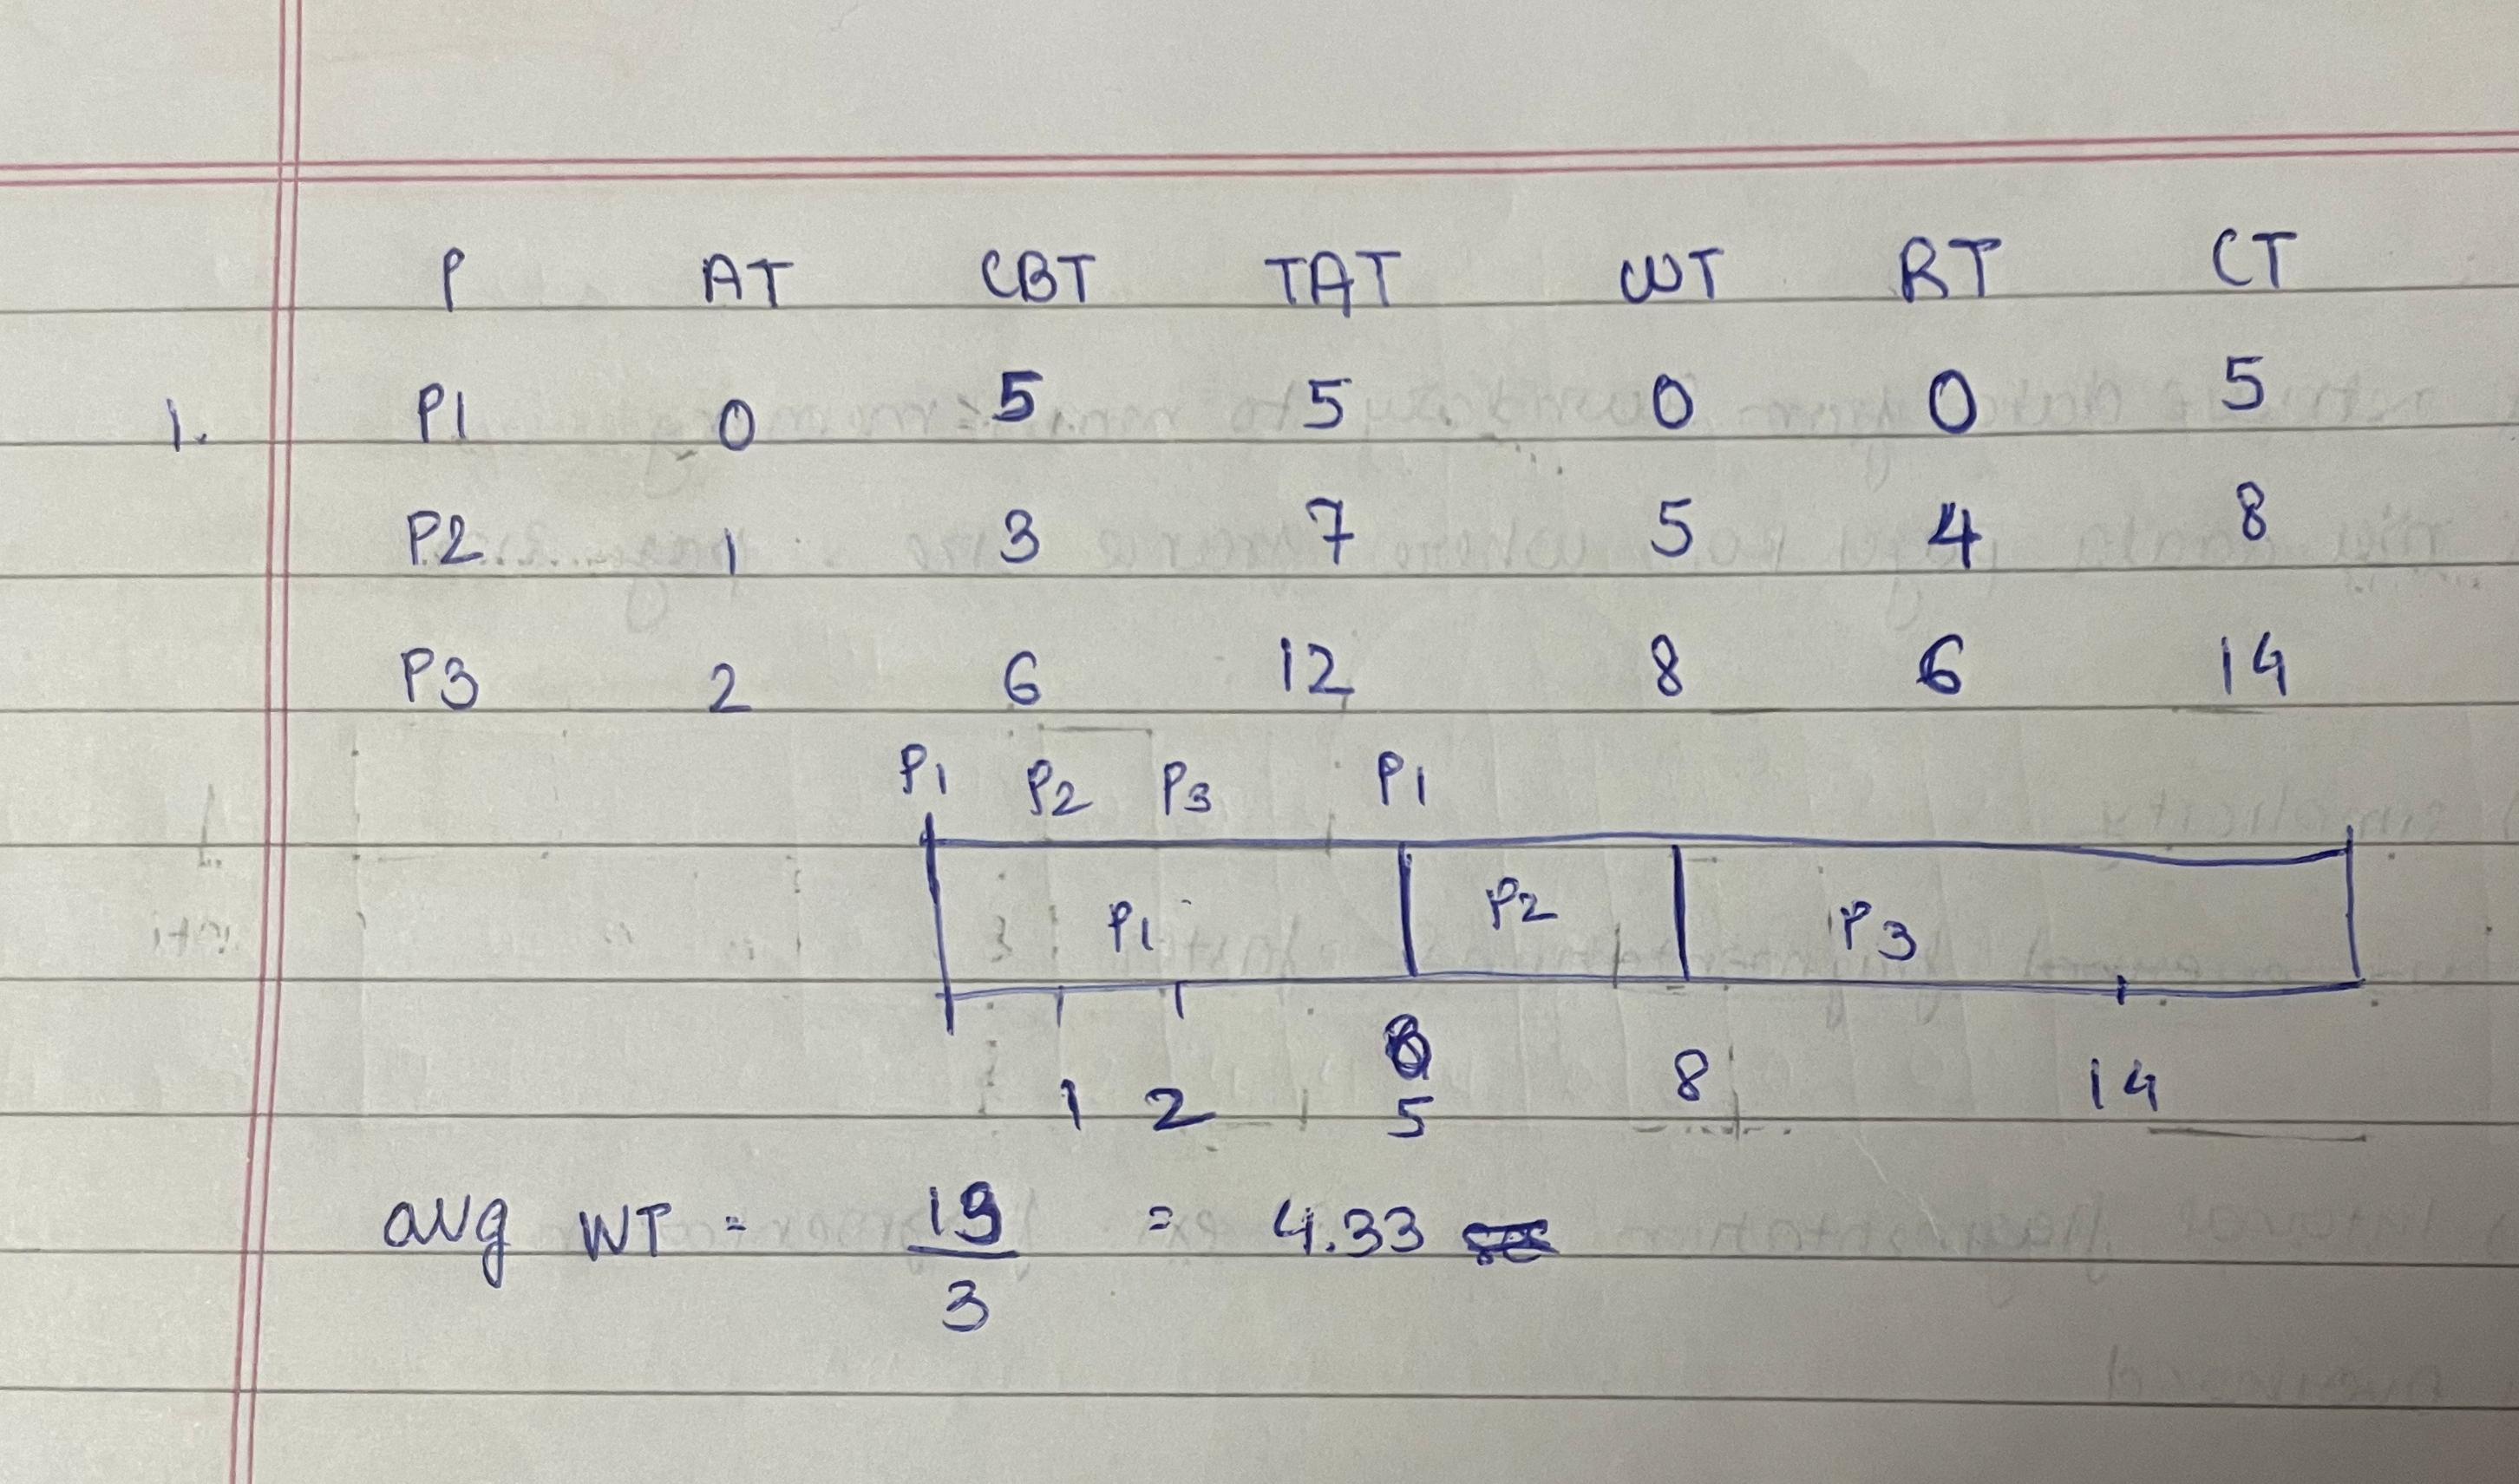 P AT CBT TAT WT RT CT
1. P1 0 5 5 0 0 5
P2 1 3 7 5 4 8
P3 2 6 12 8 6 14
P1 P2 P3 P1
P1 P2 P3
8 14
1 2 5
avg WT = 13/3 = 4.33